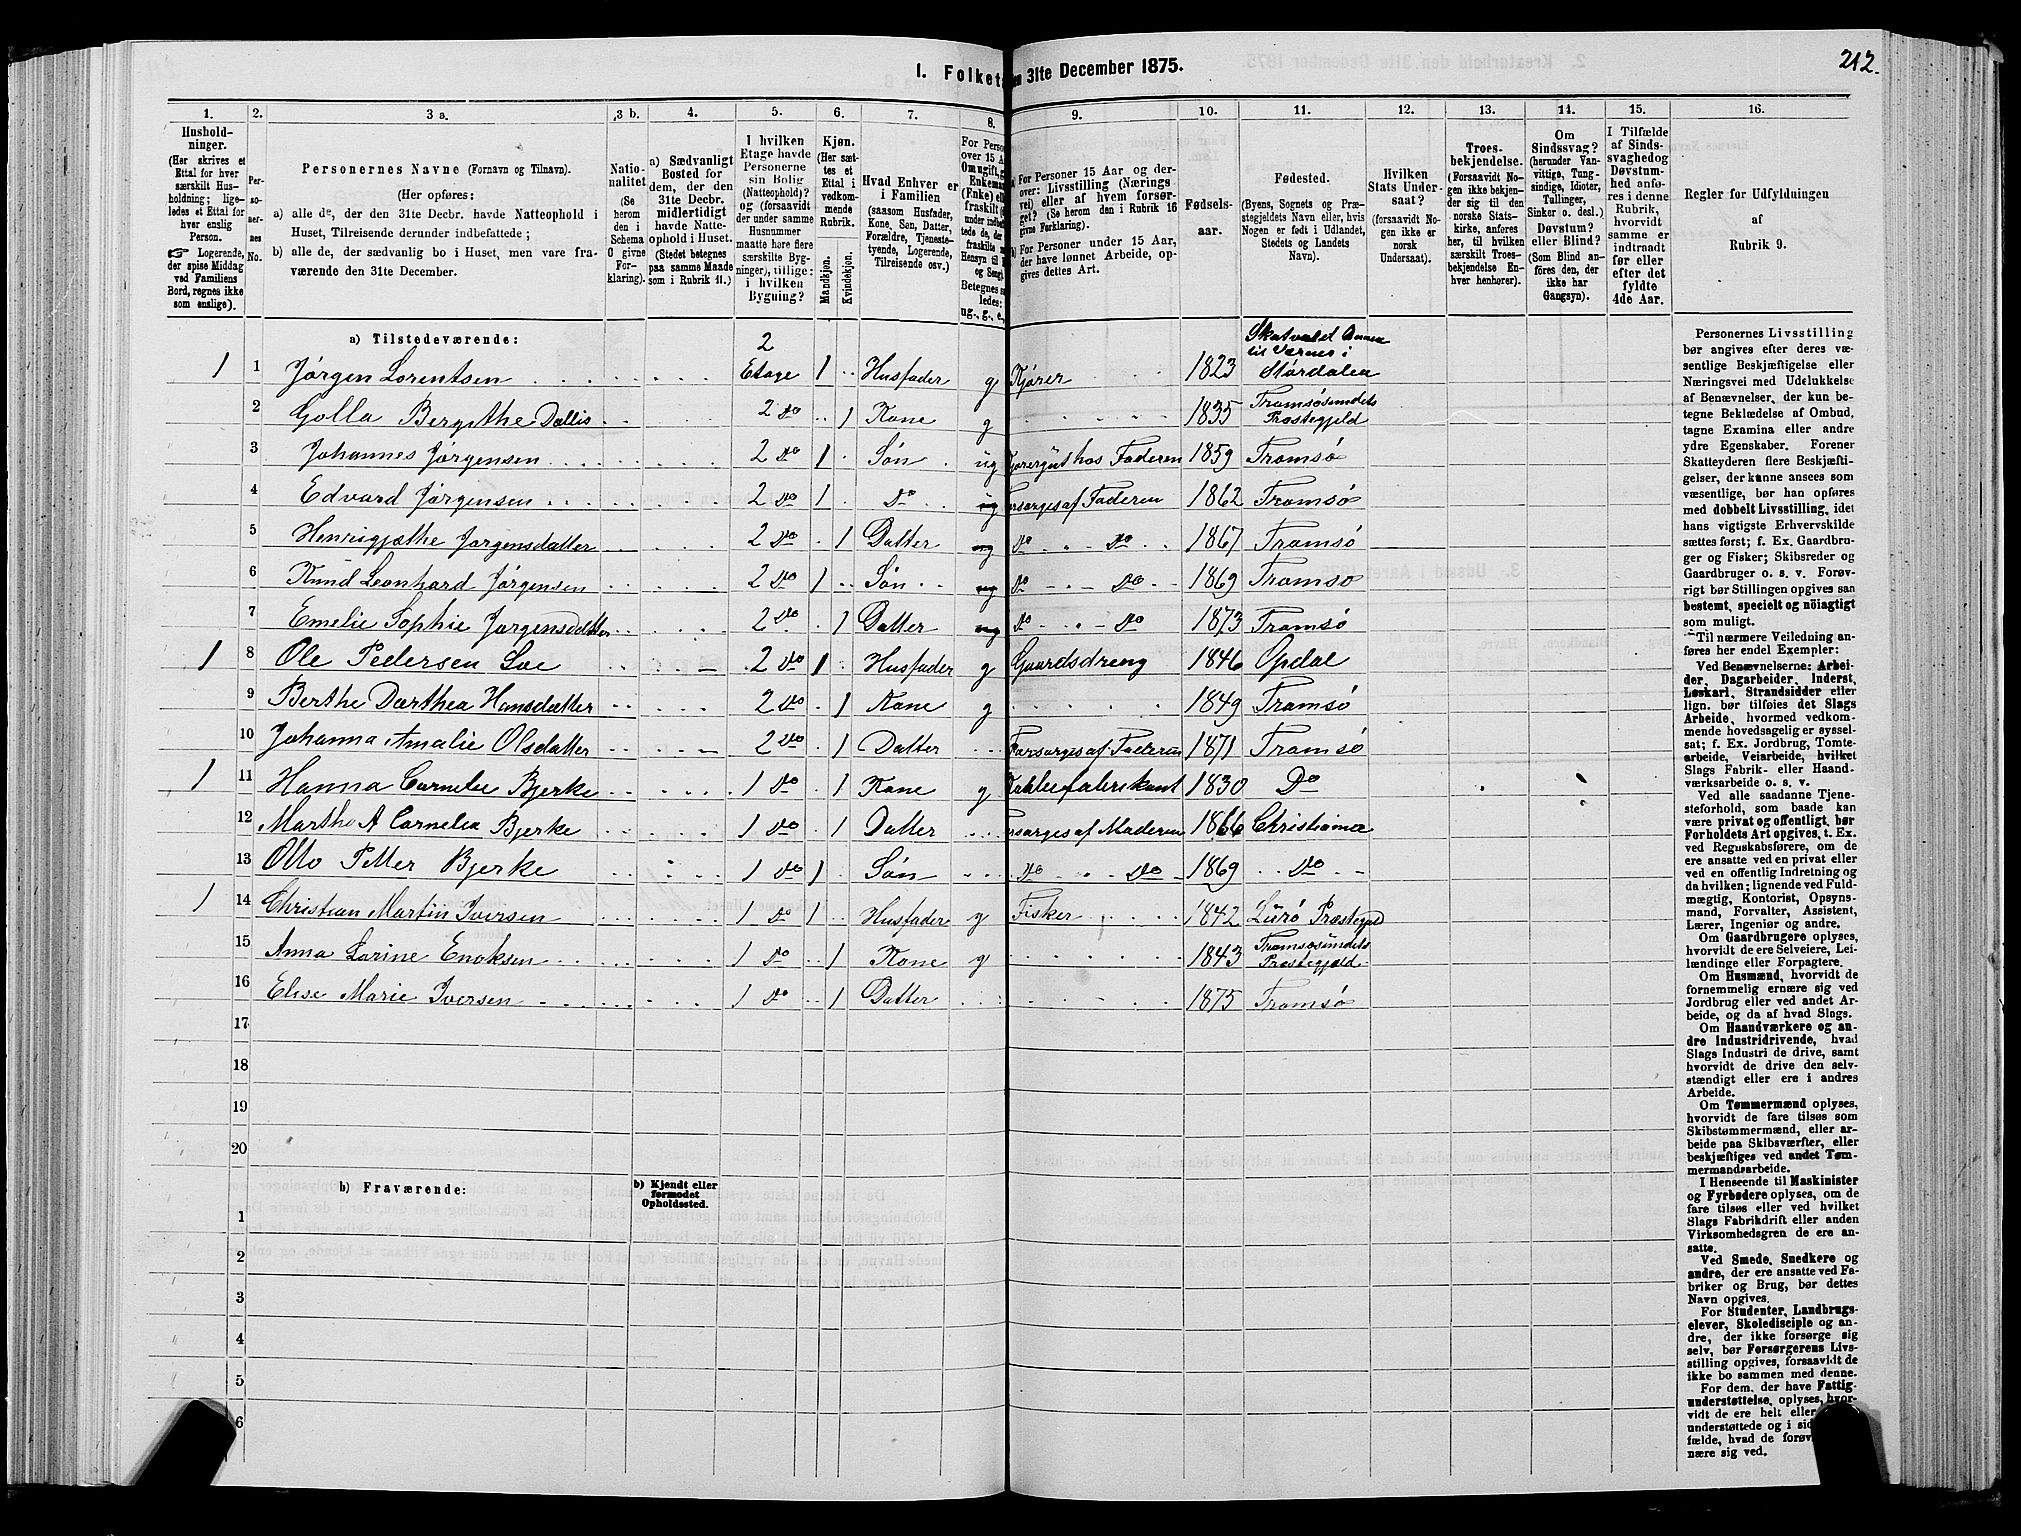 212.
I. Folket
en 31te December 1875.
1. 2. 3 a. 3 b. 4. 5. 6. 7. 8. 9. 10. 11. 12. 13. 14. 15. 16.
Hushold-
ninger.
(Her skrives et
Ettal for hver
særskilt Hus-
holdning; lige-
ledes et Ettal for
hver enslig
Person.
☞ Logerende,
der spise Middag
ved Familiens
Bord, regnes ikke
som enslige).
Per-
so-
ner-
nes
No.
Personernes Navne (Fornavn og Tilnavn).
(Her opføres:
a) alle de, der den 31te Decbr. havde Natteophold i
Huset, Tilreisende derunder indbefattede;
b) alle de, der sædvanlig bo i Huset, men vare fra-
værende den 31te December.
Natio-
nalitet
(Se
herom
den i
Schema
O givne
For-
klaring).
a) Sædvanligt
Bosted for
dem, der den
31te Decbr.
midlertidigt
havde Natte-
ophold i Huset.
(Stedet betegnes
paa samme Maade
som i Rubrik 11.)
I hvilken
Etage havde
Personerne
sin Bolig
(Natteophold)?
og (forsaavidt
der under samme
Husnummer
maatte høre flere
særskilte Byg-
ninger), tillige:
i hvilken
Bygning?
Kjøn.
(Her sæt-
tes et
Ettal i
vedkom-
mende
Rubrik.
Mandkjøn.
Kvindekjøn.
Hvad Enhver er
i Familien
(saasom Husfader,
Kone, Søn, Datter,
Forældre, Tjeneste-
tyende, Logerende,
Tilreisende osv.)
For Perso
over 15 Aa
Om ugift, g
Enkema
(Enke) el
fraskilt
under indb
tede de,
fraskilte
Hensyn til
og Seng).
Betegnes s
ledes:
ug., g., e.,
a) For Personer 15 Aar og der-
over: Livsstilling (Nærings
vei) eller af hvem forsør-
get? (Se herom den i Rubrik 16
givne Forklaring).
b) For Personer under 15 Aar,
der have lønnet Arbeide, op-
gives dettes Art.
Fødsels-
aar.
Fødested.
(Byens, Sognets og Præ-
stegjeldets Navn eller, hvis
Nogen er født i Udlandet,
Stedets og Landets
Navn).
Hvilken
Stats Under-
saat?
(forsaavidt No-
gen ikke er
norsk
Undersaat).
Troes-
bekjendelse.
(Forsaavidt No-
gen ikke bekjen-
der sig til den
norske Stats-
kirke, anføres
her, til hvilken
særskilt Troes-
bekjendelse En-
hver henhører).
Om
Sindssvag?
(herunder Van-
vittige, Tung-
sindige, Idioter,
Tullinger,
Sinker o. desl.)
Døvstum?
eller Blind?
(Som Blind an-
føres den, der
ikke har
Gangsyn).
I Tilfælde
af Sinds-
svaghed og
Døvstum-
hed anfø-
res i denne
Rubrik,
hvorvidt
samme er
indtraadt
før eller
efter det
fyldte
4de Aar.
Regler for Udfyldningen
af
Rubrik 9.
a) Tilstedeværende:
1 1 Jørgen Lorentsen 2 Etage 1 Husfader g Kjører 1823 Skatvald til Værnes i Størdalen
2 Golla Bergithe Dallis 2 do 1 Kone g 1835 Tromsøsundets Præstegjeld
3 Johannes Jørgensen 2 do 1 Søn ug hos Faderen 1859 Tromsø
4 Edvard Jørgensen 2 do 1 do ug Forsørges af Faderen 1862 Tromsø
5 Henrigjæthe Jørgensdatter 2 do 1 Datter ug do do 1867 Tromsø
6 Knud Leonhard Jørgensen 2 do 1 Søn ug do do 1869 Tromsø
7 Emelie Sophie Jørgensdatter 2 do 1 Datter ug do do 1873 Tromsø
1 8 Ole Pedersen Loe 2 do 1 Husfader g Gaardsdreng 1846 Opdal
9 Berthe Darthea Hansdatter 2 do 1 Kone g 1849 Tromsø
10 Johanna Amalie Olsdatter 2 do 1 Datter Forsørges af Faderen 1871 Tromsø
1 11 Hanna Cornelie Bjerke 1 do 1 Kone g 1830 Do
12 Marthe A Cornelia Bjerke 1 do 1 Datter Forsørges af Moderen 1866 Christiania
13 Otto Petter Bjerke 1 do 1 Søn do do 1869 do
1 14 Christian Martin Iversen 1 do 1 Husfader g Fisker 1842 Lurø Præstegjd
15 Anna Larine Enoksen 1 do 1 Kone g 1843 Tromsøsundets Præstegjeld
16 Elise Marie Iversen 1 do 1 Datter 1875 Tromsø
17
18
19
20
b) Fraværende:
b) Kjendt eller
formodet
Opholdssted.
1
2
3
4
5
6
Personernes Livsstilling
bør angives efter deres væ-
sentlige Beskjæftigelse eller
Næringsvei med Udelukkelse
af Benævnelser, der kun be-
tegne Beklædelse af Ombud,
tagne Examina eller andre
ydre Egenskaber. Forener
Skatteyderen flere Beskjæfti-
gelser, der kunne ansees som
væsentlige, bør han opføres
med dobbelt Livsstilling, idet
hans vigtigste Erhvervskilde
sættes først; f. Ex. Gaardbru-
ger og Fisker; Skibsreder og
Gaardbruger o. s. v. Forøv-
rigt bør Stillingen opgives saa
bestemt, specielt og nöiagtigt
som muligt.
Til nærmere Veiledning an-
føres her endel Exempler:
Ved Benævnelserne: Arbei-
der, Dagarbeider, Inderst,
Løskarl, Strandsidder eller
lign. bør tilføies det Slags
Arbeide, hvormed vedkom-
mende hovedsagelig er syssel-
sat; f. Ex. Jordbrug, Tomte-
arbeide, Veiarbeide, hvilket
Slags Fabrik- eller Haand-
værksarbeide o. s. v.
Ved alle saadanne Tjene-
steforhold, som baade kan
være privat og offentligt, bør
Forholdets Art opgives, t. Ex.
ved Regnskabsførere, om de
ere ansatte ved en privat eller
ved en offentlig Indretning og
da hvilken; lignende ved Fuld-
mægtig, Kontorist, Opsyns-
mand, Forvalter, Assistent,
Lærer, Ingeniør og andre.
Om Gaardbrugere oplyses,
hvorvidt de ere Selveiere, Lei-
lændinge eller Forpagtere.
Om Husmænd, hvorvidt de
fornemmelig ernære sig ved
Jordbrug eller ved andet Ar-
beide, og da af hvad Slags.
Om Haandværkere og an-
dre Industridrivende, hvad
Slags Industri de drive, samt
hvorvidt de drive den selv-
stændigt eller ere i andres
Arbeide.
Om Tømmermænd oplyses,
hvorvidt de fare tilsøs som
Skibstømmermænd, eller ar-
beide paa Skibsværfter, eller
beskjæftiges ved andet Tøm-
mermandsarbeide.
I Henseende til Maskinister
og Fyrbødere oplyses, om de
fare tilsøs eller ved hvilket
Slags Fabrikdrift eller anden
Virksomhedsgren de ere an-
satte.
Ved Smede, Snedkere og
andre, der ere ansatte ved Fa-
briker og Brug, bør dettes
Navn opgives.
For Studenter, Landbrugs-
elever, Skoledisciple og an-
dre, der ikke forsørge sig
selv, bør Forsørgerens Livs-
stilling opgives, forsaavidt de
ikke bo sammen med denne.
For dem, der have Fattig-
understøttelse, oplyses, hvor-
vidt de ere helt eller
understøttede og i si
fælde, hvad de forøv
nære sig ved.